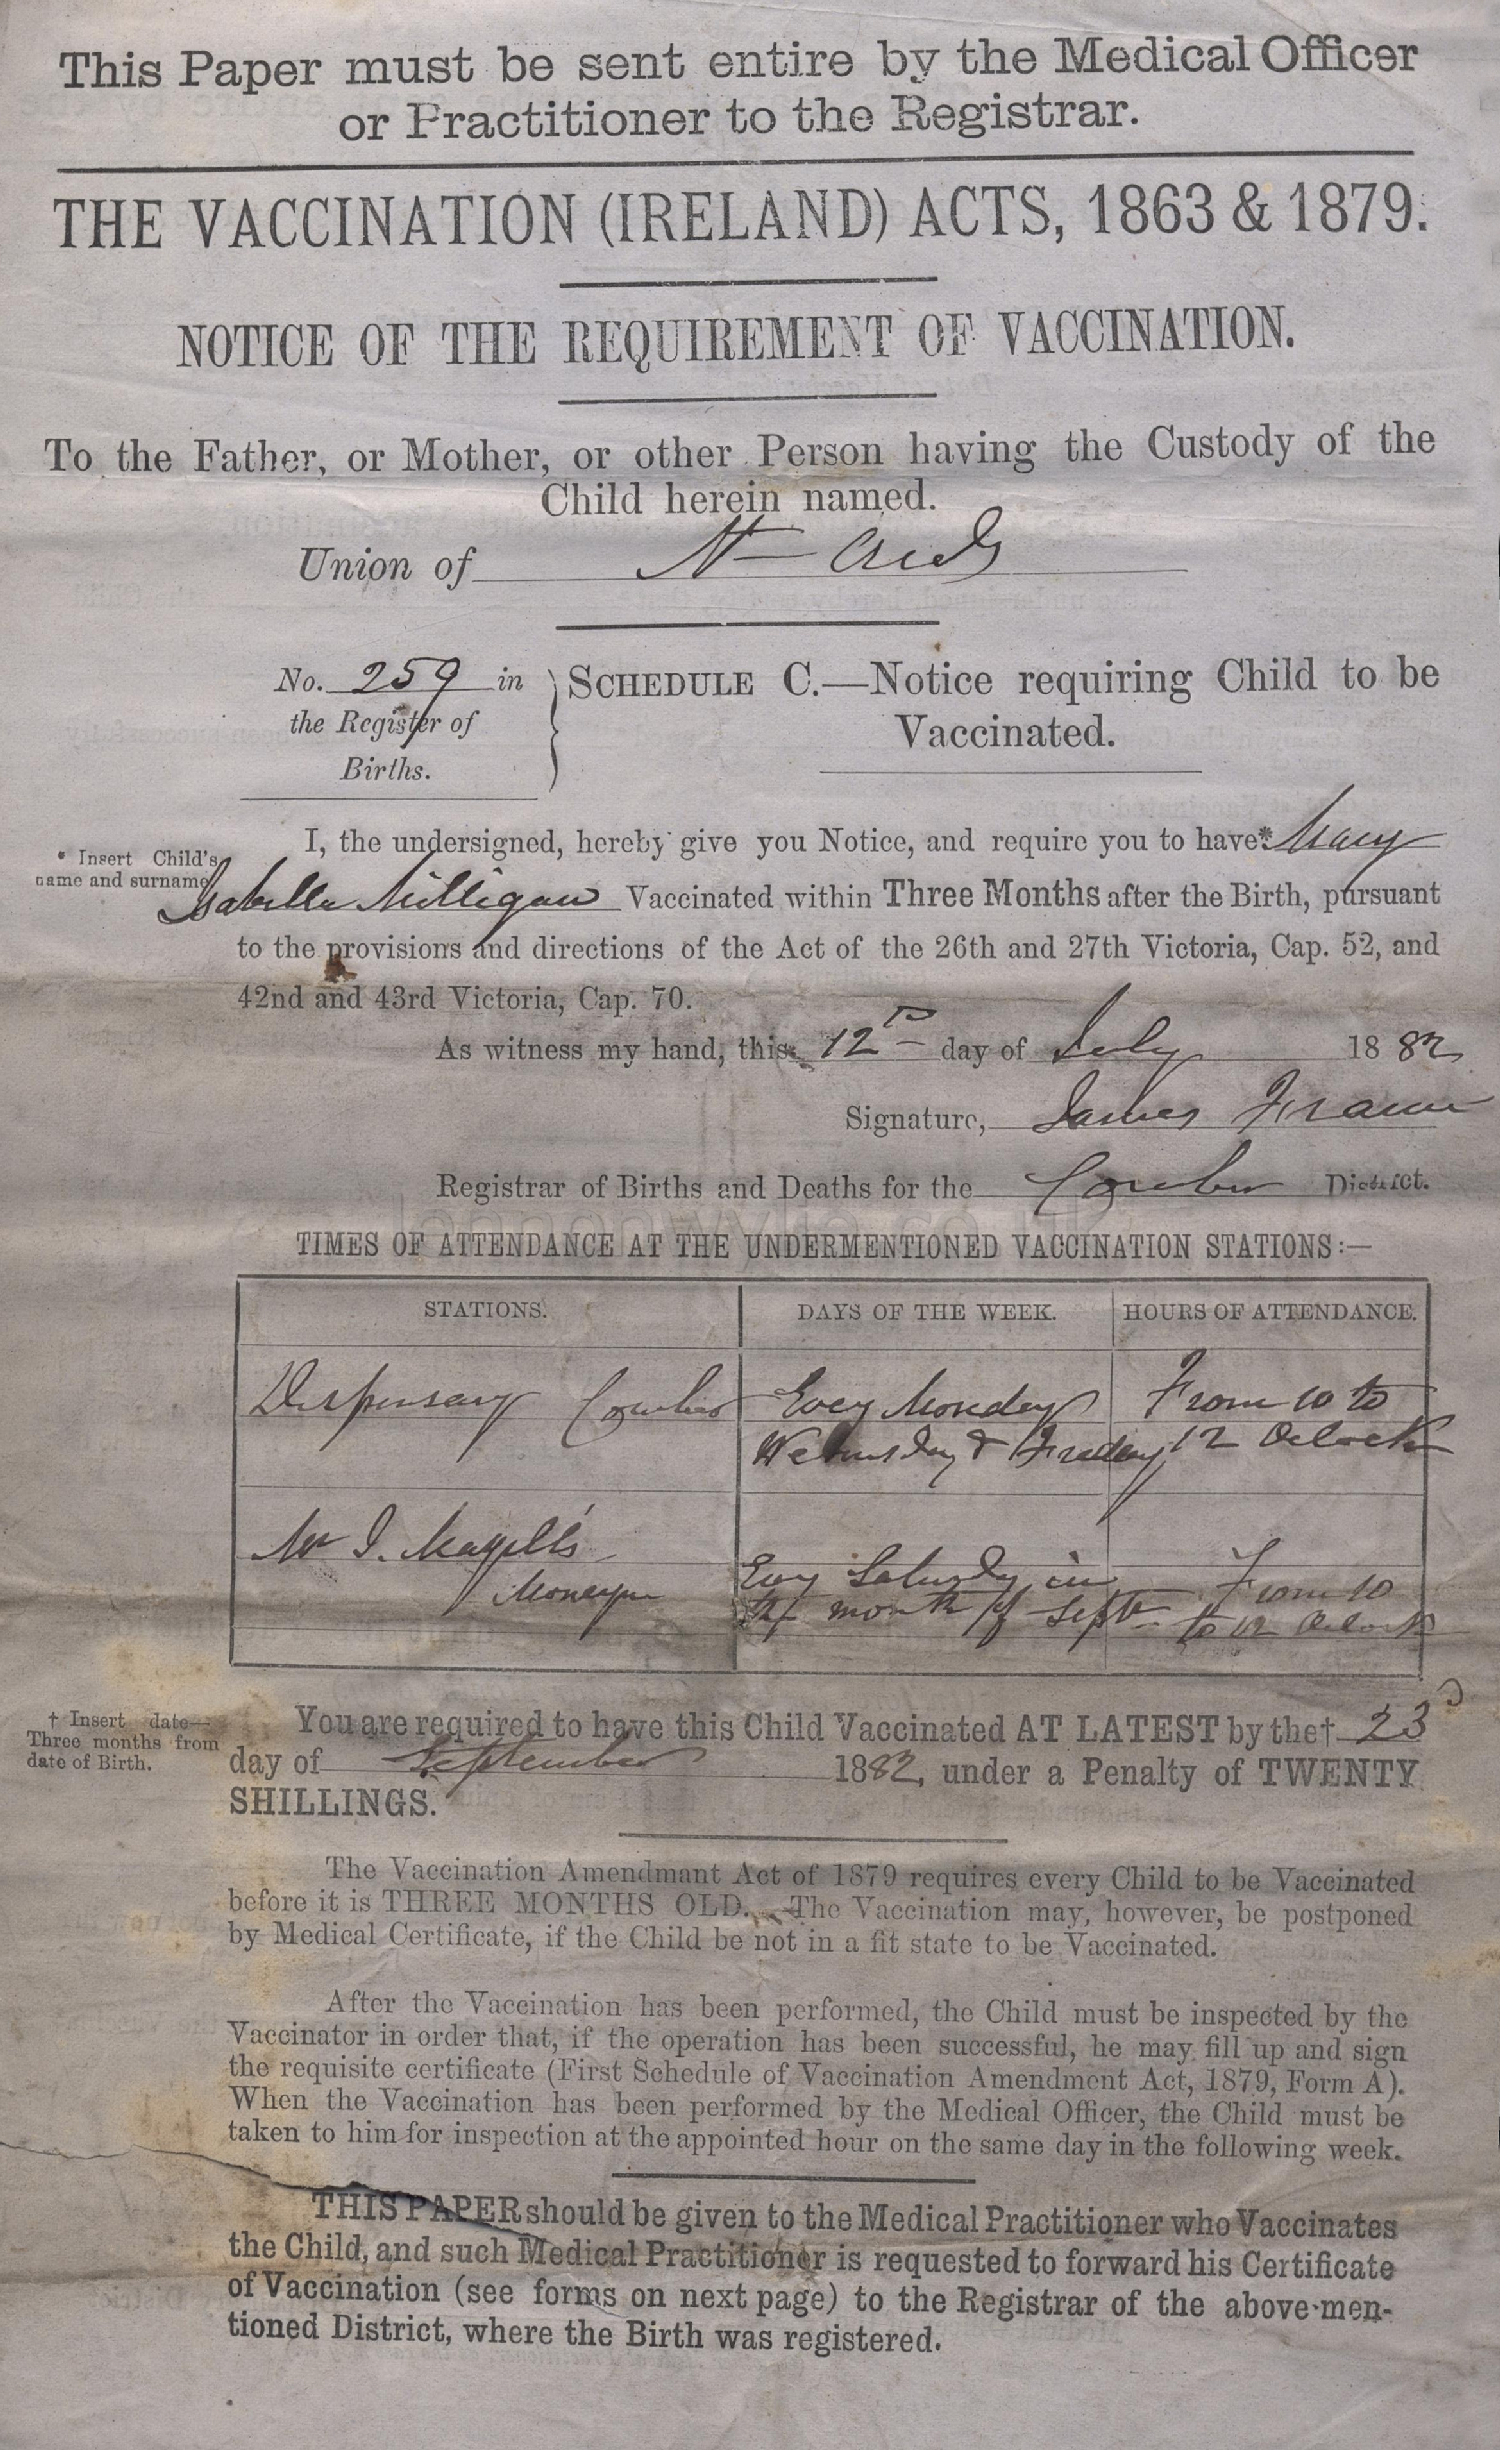 This Paper must be sent entire by the Medical Officer
or Practitioner to the Registrar.
THE VACCINATION (IRELAND) ACTS, 1863 & 1879.
NOTICE OF THE REQUIREMENT OF VACCINATION.
To the Father, or Mother, or other Person having the Custody of the
Child herein named.
Union of N– Ards
No. 259 in
the Register of
Births.
SCHEDULE C.—Notice requiring Child to be
Vaccinated.
I, the undersigned, hereby give you Notice, and require you to have* Mary
* Insert Child's
name and surname
Isabella Milligan Vaccinated within Three Months after the Birth, pursuant
to the provisions and directions of the Act of the 26th and 27th Victoria, Cap. 52, and
42nd and 43rd Victoria, Cap. 70.
As witness my hand, this 12th day of July 1882
Signature, James Frame
Registrar of Births and Deaths for the Comber District.
lennonwylie.co.uk
TIMES OF ATTENDANCE AT THE UNDERMENTIONED VACCINATION STATIONS:—
STATIONS. DAYS OF THE WEEK. HOURS OF ATTENDANCE.
Dispensary Comber Every Monday From 10 to
Wednesday & Friday 12 Oclock
Mr J. Magill's
Moneyrea Every Saturday in From 10
the month of Sept to 12 Oclock
† Insert date—
Three months from
date of Birth.
You are required to have this Child Vaccinated AT LATEST by the† 23d
day of September 1882, under a Penalty of TWENTY
SHILLINGS.
The Vaccination Amendmant Act of 1879 requires every Child to be Vaccinated
before it is THREE MONTHS OLD. The Vaccination may, however, be postponed
by Medical Certificate, if the Child be not in a fit state to be Vaccinated.
After the Vaccination has been performed, the Child must be inspected by the
Vaccinator in order that, if the operation has been successful, he may fill up and sign
the requisite certificate (First Schedule of Vaccination Amendment Act, 1879, Form A).
When the Vaccination has been performed by the Medical Officer, the Child must be
taken to him for inspection at the appointed hour on the same day in the following week.
THIS PAPER should be given to the Medical Practitioner who Vaccinates
the Child, and such Medical Practitioner is requested to forward his Certificate
of Vaccination (see forms on next page) to the Registrar of the above-men-
tioned District, where the Birth was registered.